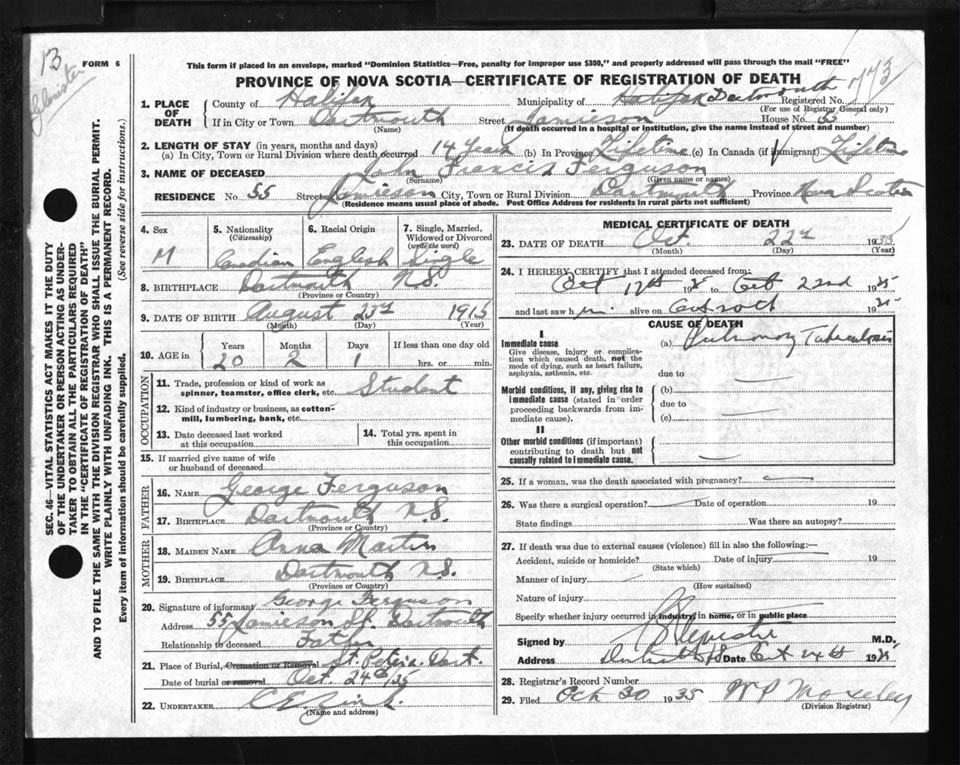 13
FORM 6
This form if placed in an envelope, marked "Dominion Statistics—Free, penalty for improper use $300," and properly addressed will pass through the mail "FREE"
PROVINCE OF NOVA SCOTIA—CERTIFICATE OF REGISTRATION OF DEATH
1. PLACE OF DEATH
County of Halifax Municipality of Halifax Dartmouth Registered No. 773
(For use of Registrar General only)
If in City or Town Dartmouth Street Jamieson House No. 55
(Name) (If death occurred in a hospital or institution, give the name instead of street and number)
2. LENGTH OF STAY (in years, months and days)
(a) In City, Town or Rural Division where death occurred 14 Years (b) In Province Lifetime (c) In Canada (if immigrant) Lifetime
3. NAME OF DECEASED John Francis Ferguson
(Surname) (Given name or names)
RESIDENCE No. 55 Street Jamieson City, Town or Rural Division Dartmouth Province Nova Scotia
(Residence means usual place of abode. Post Office Address for residents in rural parts not sufficient)
4. Sex
M
5. Nationality (Citizenship)
Canadian
6. Racial Origin
English
7. Single, Married, Widowed or Divorced (write the word)
Single
8. BIRTHPLACE Dartmouth N.S.
(Province or Country)
9. DATE OF BIRTH August 23rd 1915
(Month) (Day) (Year)
10. AGE in
Years Months Days If less than one day old
20 2 1 hrs. or min.
OCCUPATION
11. Trade, profession or kind of work as spinner, teamster, office clerk, etc. Student
12. Kind of industry or business, as cotton-mill, lumbering, bank, etc.
13. Date deceased last worked at this occupation
14. Total yrs. spent in this occupation
15. If married give name of wife or husband of deceased
FATHER
16. NAME George Ferguson
17. BIRTHPLACE Dartmouth N.S.
(Province or Country)
MOTHER
18. MAIDEN NAME Anna Martin
19. BIRTHPLACE Dartmouth N.S.
(Province or Country)
20. Signature of informant George Ferguson
Address 55 Jamieson St. Dartmouth
Relationship to deceased Father
21. Place of Burial, Cremation or Removal St. Peters. Dart.
Date of burial or removal Oct. 24th, 35
22. UNDERTAKER
(Name and address)
MEDICAL CERTIFICATE OF DEATH
23. DATE OF DEATH Oct. 22d 1935
(Month) (Day) (Year)
24. I HEREBY CERTIFY that I attended deceased from:
Oct 17th 35 to Oct 22nd 1935
and last saw him alive on 1935
CAUSE OF DEATH
I
Immediate cause
Give disease, injury or complication which caused death, not the mode of dying, such as heart failure, asphyxia, asthenia, etc.
(a) Pulmonary Tuberculosis
due to
Morbid conditions, if any, giving rise to immediate cause (stated in order proceeding backwards from immediate cause).
(b)
due to
(c)
II
Other morbid conditions (if important) contributing to death but not causally related to immediate cause.
25. If a woman, was the death associated with pregnancy?
26. Was there a surgical operation? Date of operation 19
State findings Was there an autopsy?
27. If death was due to external causes (violence) fill in also the following:—
Accident, suicide or homicide? Date of injury 19
(State which)
Manner of injury
(How sustained)
Nature of injury
Specify whether injury occurred in industry, in home, or in public place
Signed by M.D.
Address Date Oct 24th 1935
28. Registrar's Record Number
29. Filed Oct 30 1935 W P Moseley
(Division Registrar)
SEC. 46—VITAL STATISTICS ACT MAKES IT THE DUTY
OF THE UNDERTAKER OR PERSON ACTING AS UNDER-
TAKER TO OBTAIN ALL THE PARTICULARS REQUIRED
IN THE "CERTIFICATE OF REGISTRATION OF DEATH"
AND TO FILE THE SAME WITH THE DIVISION REGISTRAR WHO SHALL ISSUE THE BURIAL PERMIT.
WRITE PLAINLY WITH UNFADING INK. THIS IS A PERMANENT RECORD.
Every item of information should be carefully supplied. (See reverse side for instructions.)